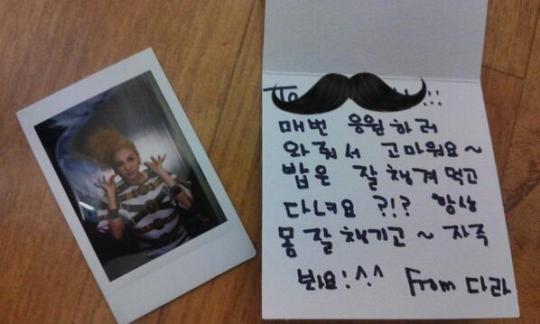 To !!!
매번 응원하러
와줘서 고마워요~
밥은 잘 챙겨 먹고
다녀요 ?!? 항상
몸 잘 챙기고~ 자주
봐요!^.^ From 다라